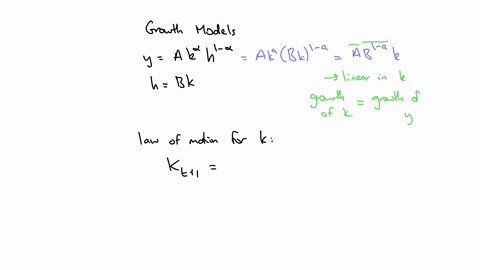 Growth Models
y = A k^α h^{1-α} = A k^α (Bk)^{1-α} = A B^{1-α} k
h = Bk
→ linear in k
growth of k = growth of y
law of motion for k:
K_{t+1} =